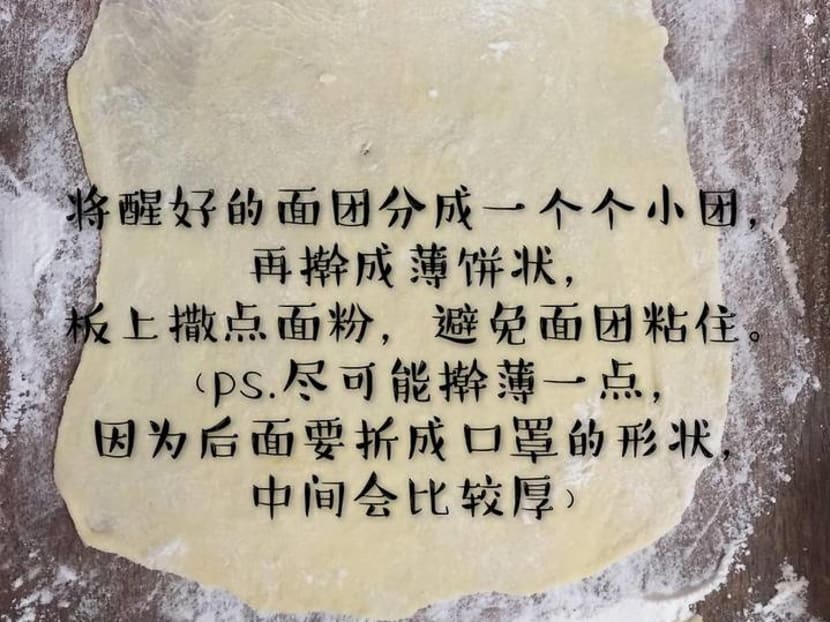 将醒好的面团分成一个个小团，
再擀成薄饼状，
板上撒点面粉，避免面团粘住。
（ps.尽可能擀薄一点，
因为后面要折成口罩的形状，
中间会比较厚）